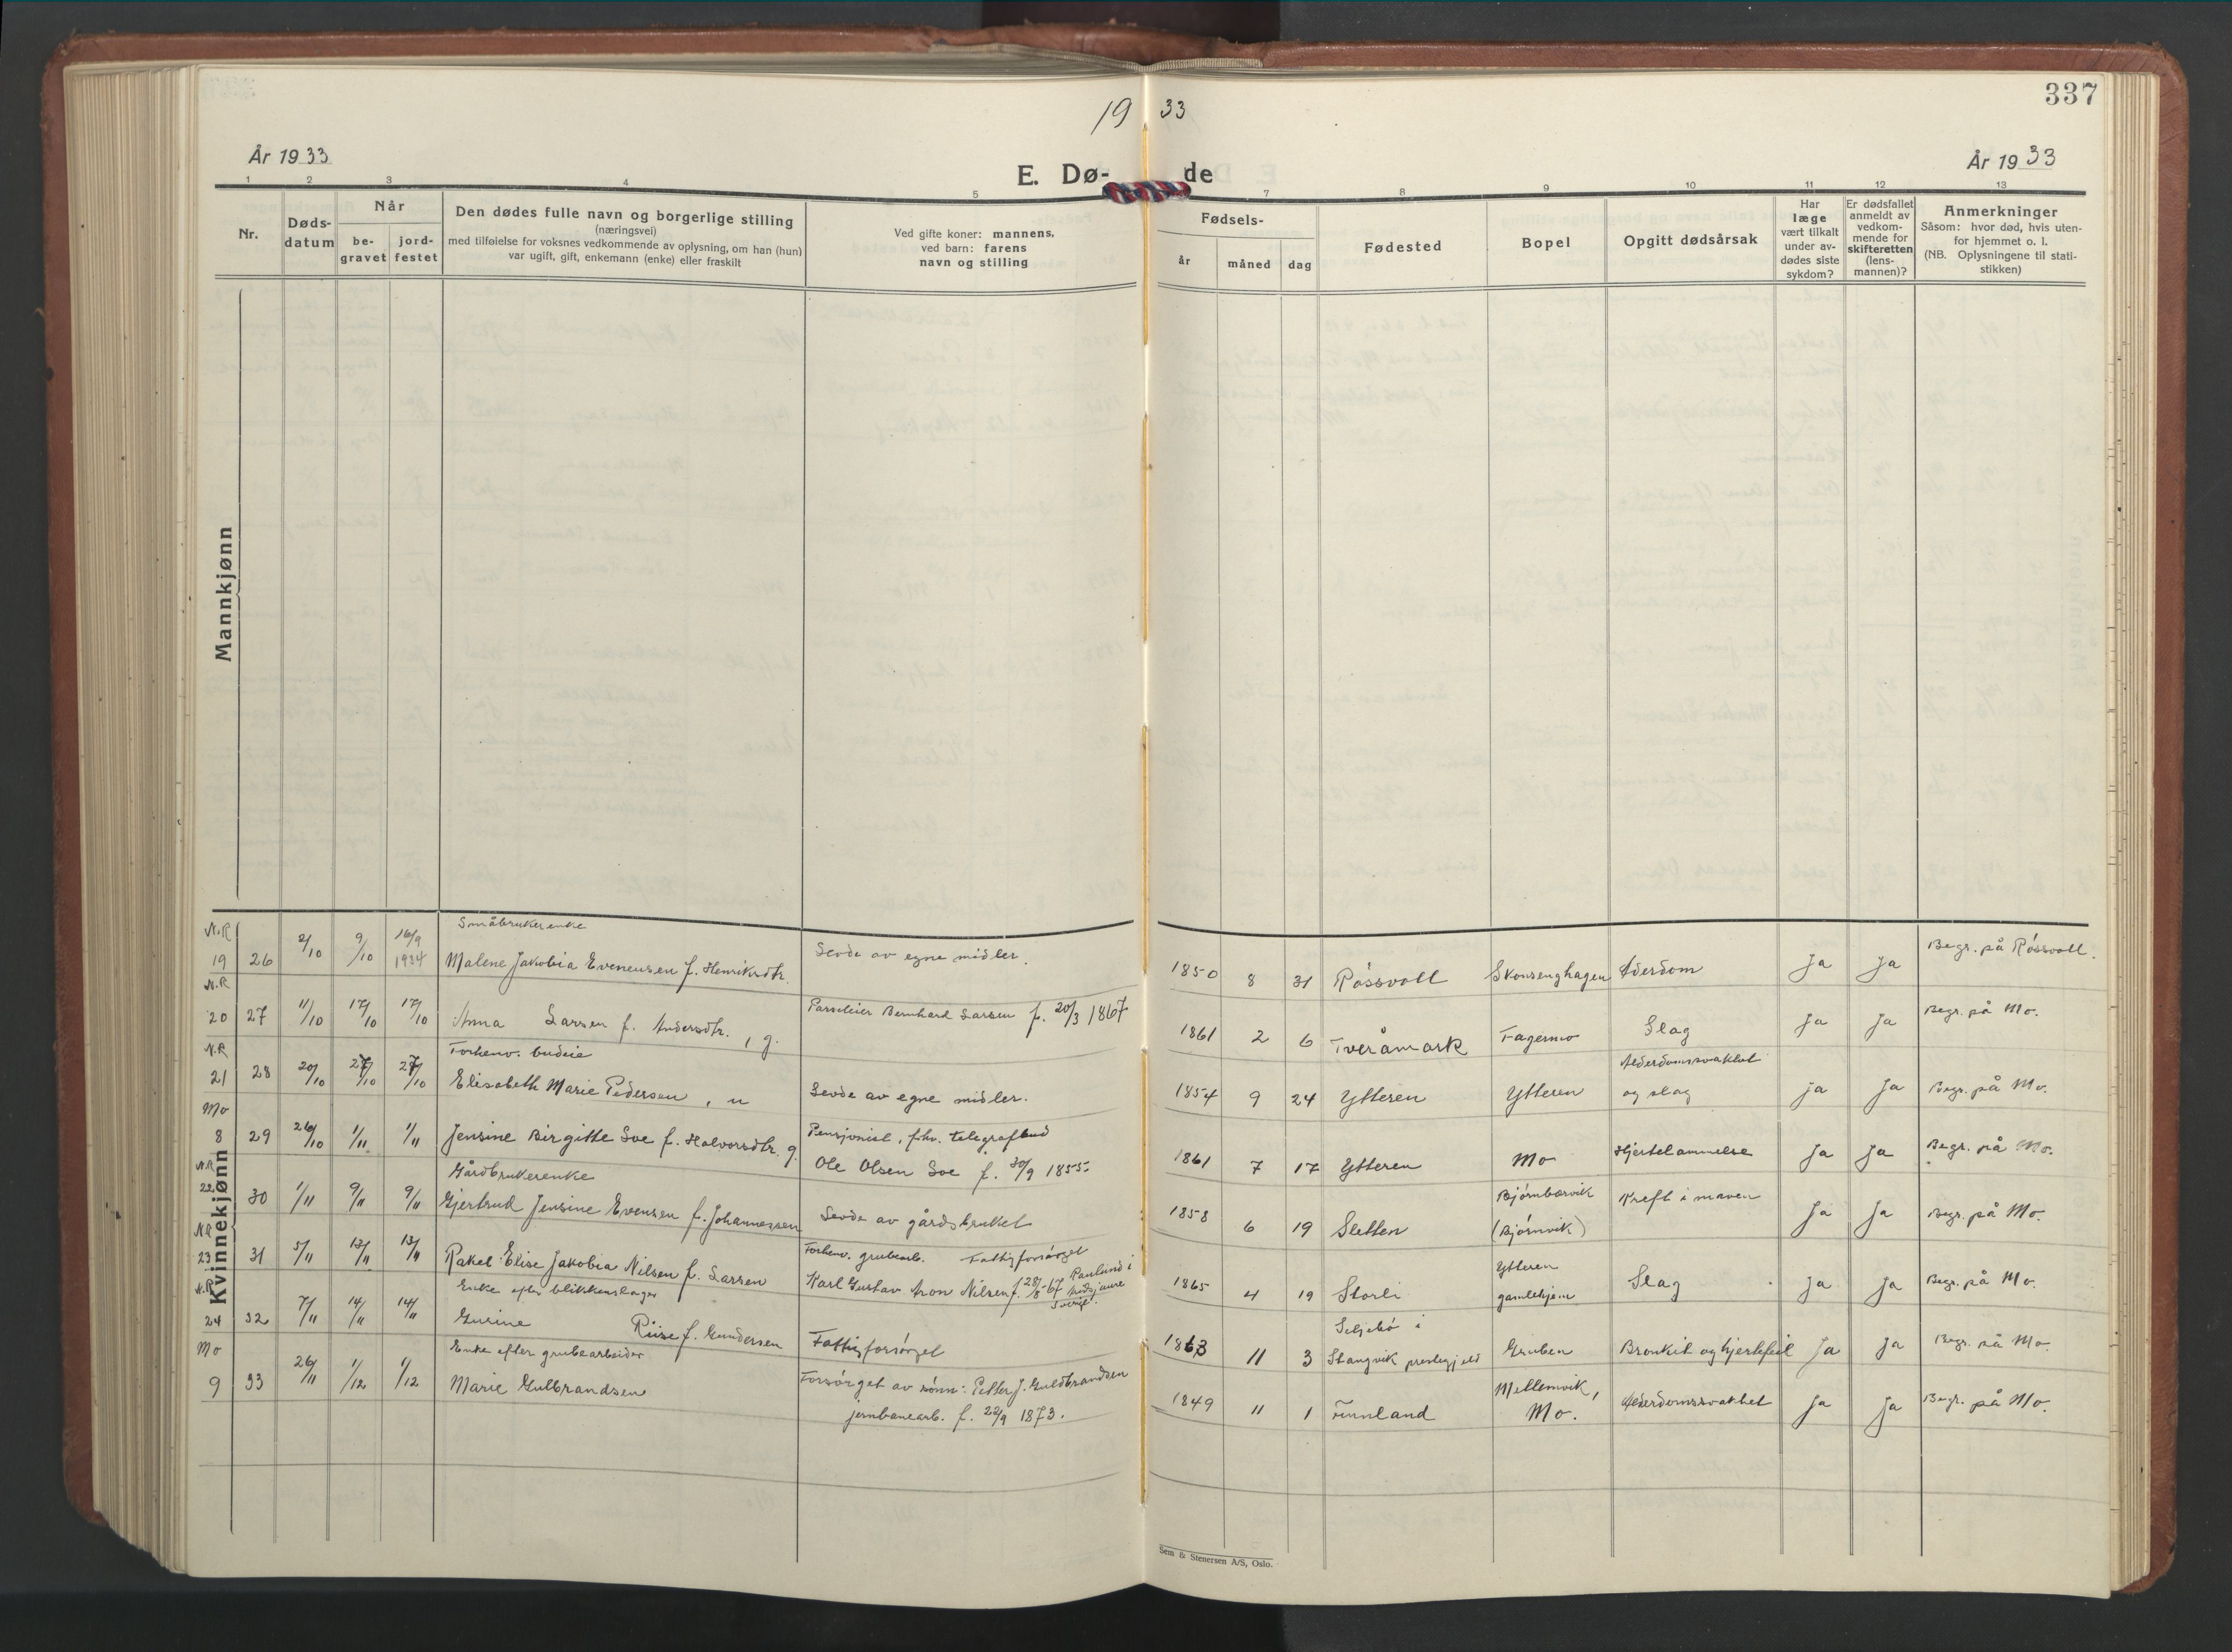 337
19 33
År 1933
År 1933
E. Dø- de
1 2 3 4 5 7 8 9 10 11 12 13
Nr.
Døds-
datum
Når
be-
gravet
jord-
festet
Den dødes fulle navn og borgerlige stilling
(næringsvei)
med tilføielse for voksnes vedkommende av oplysning, om han (hun)
var ugift, gift, enkemann (enke) eller fraskilt
Ved gifte koner: mannens,
ved barn: farens
navn og stilling
Fødsels-
år
måned
dag
Fødested
Bopel
Opgitt dødsårsak
Har
læge
vært tilkalt
under av-
dødes siste
sykdom?
Er dødsfallet
anmeldt av
vedkom-
mende for
skifteretten
(lens-
mannen)?
Anmerkninger
Såsom: hvor død, hvis uten-
for hjemmet o. l.
(NB. Oplysningene til stati-
stikken)
Mannkjønn
Kvinnekjønn
N.R Småbrukerenke
19 26 2/10 9/10 16/9 1934 Malene Jakobia Evenensen f. Henriksdtr. Levde av egne midler. 1850 8 31 Røssvoll Skonsenghagen Alderdom Ja Ja Begr. på Røssvoll.
N.R
20 27 11/10 17/10 17/10 Anna Larsen f. Andersdtr., g. Parseleier Bernhard Larsen f. 20/3 1867 1861 2 6 Tveråmark Fagermo Slag Ja Ja Begr. på Mo.
N.R Forhenv. budeie Alderdomssvakhet
21 28 20/10 27/10 27/10 Elisabeth Marie Pedersen, u Levde av egne midler. 1854 9 24 Ytteren Ytteren og slag Ja Ja Begr. på Mo.
Mo Pensjonist, fhv. telegrafbud
8 29 26/10 1/11 1/11 Jensine Birgitte Soe f. Halvorsdtr. g. Ole Olsen Soe f. 30/9 1855 1861 7 17 Ytteren Mo Hjertelammelse Ja Ja Begr. på Mo.
N.R Gårdbrukerenke Bjørnbærvik
22 30 1/11 9/11 9/11 Gjertrud Jensine Evensen f. Johannessen Levde av gårdsbruket 1858 6 19 Sletten (Bjørnvik) Kreft i maven Ja Ja Begr. på Mo.
N.R Forhenv. grubearb. Fattigforsørget Ytteren
23 31 5/11 13/11 13/11 Rakel Elise Jakobia Nilsen f. Larsen Karl Gustav Aron Nilsen f. 28/8-67 Paulund i
Sverige. 1865 4 19 Storli gamlehjem Slag Ja Ja Begr. på Mo.
N.R Enke efter blikkenslager Seljebø i
24 32 7/11 14/11 14/11 Gurine Riise f. Gundersen Fattigforsørget 1863 11 3 Stangvik prestegjeld Gruben Bronkit og hjertefeil Ja Ja Begr. på Mo.
Mo Enke efter grubearbeider Mellomvik,
9 33 26/11 1/12 1/12 Marie Gulbrandsen Forsørget av sønn: Petter J. Guldbrandsen
jernbanearb. f. 22/9 1873. 1849 11 1 Finnland Mo. Alderdomssvakhet Ja Ja Begr. på Mo.
Sem & Stenersen A/S, Oslo.